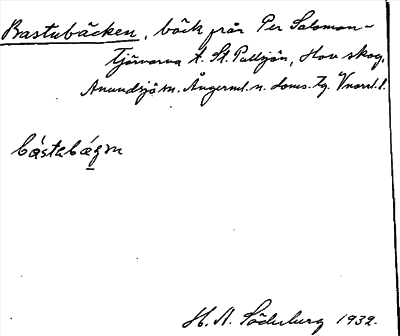 Bastubäcken, bäck från Per Salomon-
Tjärnarna t. St. Pallsjön, Hov skog,
Anundsjö sn. Ångerml. n. doms. Tg. Vnorrl. l.
bástabágɱ
H. A. Söderberg 1932.